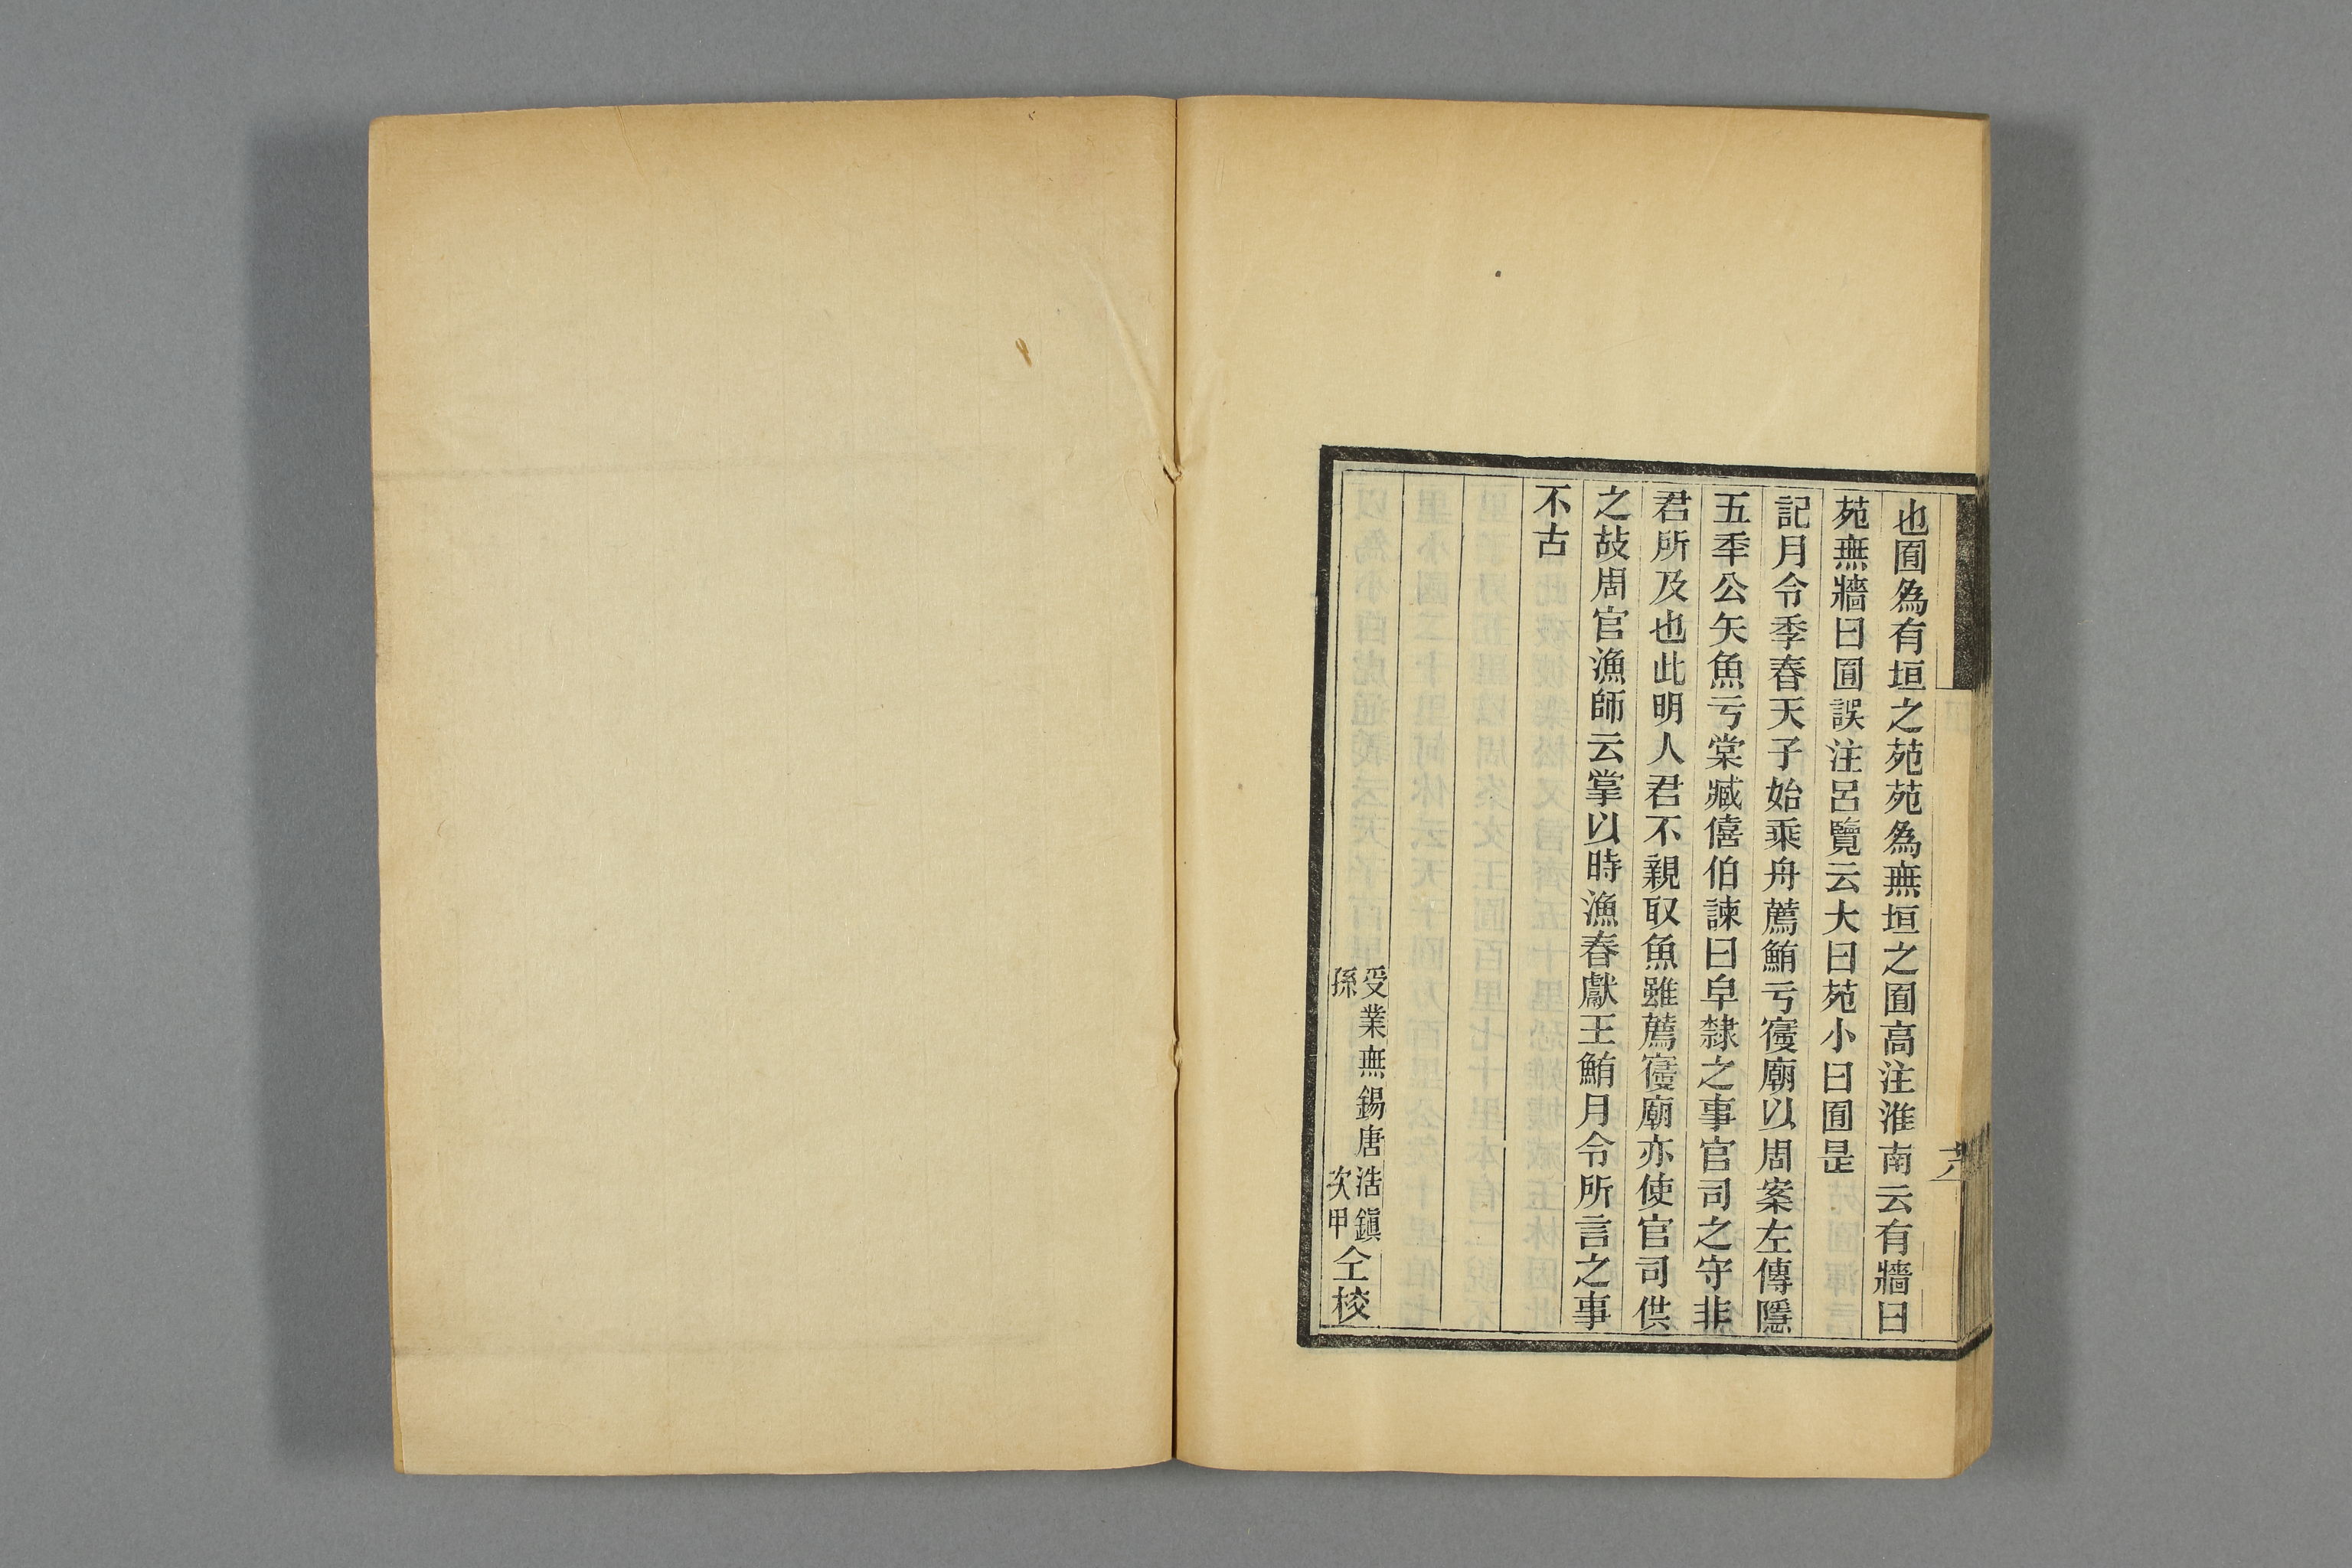 也囿為有垣之苑苑為無垣之囿高注淮南云有牆曰
苑無牆曰囿誤注呂覽云大曰苑小曰囿是
記月令季春天子始乘舟薦鮪亏寑廟以周案左傳隱
五秊公矢魚亏棠臧僖伯諫曰皁隸之事官司之守非
君所及也此明人君不親取魚雖薦寑廟亦使官司供
之故周官漁師云掌以時漁春獻王鮪月令所言之事
不古
受業無錫唐浩鎮
孫次甲
仝校